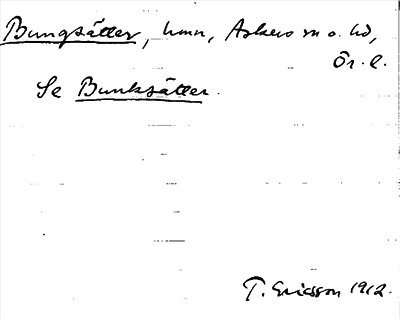 Bungsätter, hmn, Askers sn o. hd,
Ör. l.
Se Bunksätter.
T. Ericsson 1912.